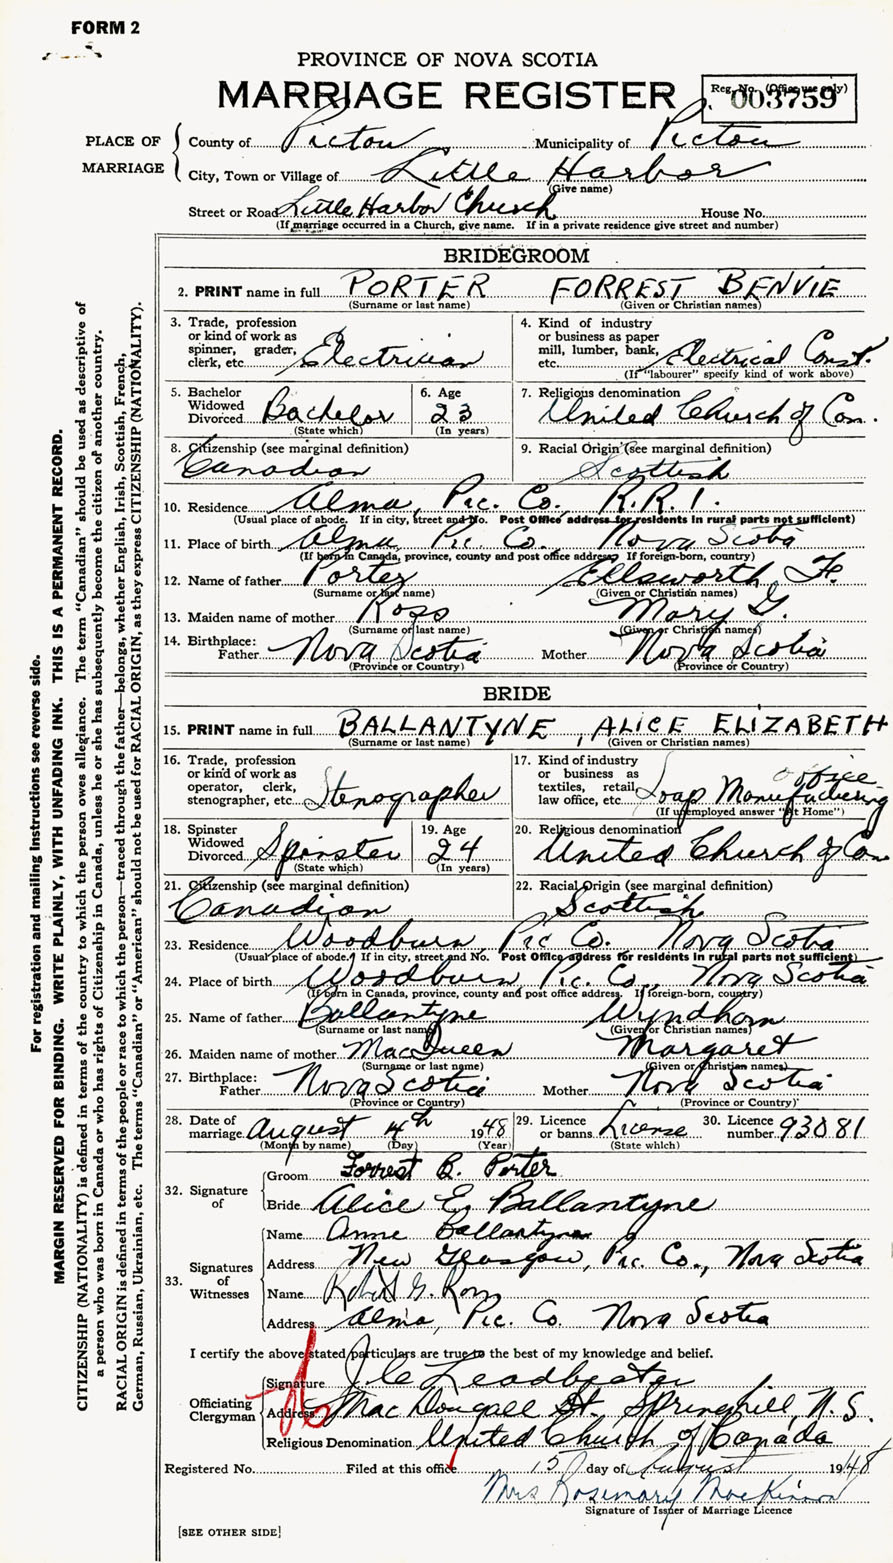 FORM 2
PROVINCE OF NOVA SCOTIA
MARRIAGE REGISTER
Reg. No. (Office use only)
003759
PLACE OF MARRIAGE
County of Pictou Municipality of Pictou
City, Town or Village of Little Harbor
(Give name)
Street or Road Little Harbor Church House No.
(If marriage occurred in a Church, give name. If in a private residence give street and number)
BRIDEGROOM
2. PRINT name in full PORTER FORREST BENVIE
(Surname or last name) (Given or Christian names)
3. Trade, profession 4. Kind of industry
or kind of work as or business as paper
spinner, grader, mill, lumber, bank,
clerk, etc. Electrician etc. Electrical Const.
(If "labourer" specify kind of work above)
5. Bachelor 6. Age 7. Religious denomination
Widowed
Divorced Bachelor 23 United Church of Can.
(State which) (In years)
8. Citizenship (see marginal definition) 9. Racial Origin (see marginal definition)
Canadian Scottish
10. Residence Alma, Pic. Co. R.R.1.
(Usual place of abode. If in city, street and No. Post Office address for residents in rural parts not sufficient)
11. Place of birth Alma, Pic. Co. Nova Scotia
(If born in Canada, province, county and post office address. If foreign-born, country)
12. Name of father Porter Ellsworth F.
(Surname or last name) (Given or Christian names)
13. Maiden name of mother Ross Mary G.
(Surname or last name) (Given or Christian names)
14. Birthplace:
Father Nova Scotia Mother Nova Scotia
(Province or Country) (Province or Country)
BRIDE
15. PRINT name in full BALLANTYNE, ALICE ELIZABETH
(Surname or last name) (Given or Christian names)
16. Trade, profession 17. Kind of industry
or kind of work as or business as
operator, clerk, textiles, retail office
stenographer, etc. Stenographer law office, etc. Soap Manufacturing
(If unemployed answer "At Home")
18. Spinster 19. Age 20. Religious denomination
Widowed
Divorced Spinster 24 United Church of Can
(State which) (In years)
21. Citizenship (see marginal definition) 22. Racial Origin (see marginal definition)
Canadian Scottish
23. Residence Woodburn, Pic Co. Nova Scotia
(Usual place of abode. If in city, street and No. Post Office address for residents in rural parts not sufficient)
24. Place of birth Woodburn Pic Co., Nova Scotia
(If born in Canada, province, county and post office address. If foreign-born, country)
25. Name of father Ballantyne Wyndham
(Surname or last name) (Given or Christian names)
26. Maiden name of mother MacQueen Margaret
(Surname or last name) (Given or Christian names)
27. Birthplace:
Father Nova Scotia Mother Nova Scotia
(Province or Country) (Province or Country)
28. Date of 29. Licence 30. Licence
marriage August 4th 1948 or banns License number 93081
(Month by name) (Day) (Year) (State which)
32. Signature of
Groom Forrest B. Porter
Bride Alice E. Ballantyne
33. Signatures of Witnesses
Name Anne Ballantyne
Address New Glasgow, Pic. Co., Nova Scotia
Name Robert G. Ross
Address Alma, Pic. Co. Nova Scotia
I certify the above stated particulars are true to the best of my knowledge and belief.
Officiating Clergyman
Signature J. C. Leadbeater
Address MacDougall St. Springhill, N.S.
Religious Denomination United Church of Canada
Registered No. Filed at this office 15 day of August 1948
Mrs Rosemary MacKinnon
Signature of Issuer of Marriage Licence
[SEE OTHER SIDE]
For registration and mailing instructions see reverse side.
MARGIN RESERVED FOR BINDING. WRITE PLAINLY, WITH UNFADING INK. THIS IS A PERMANENT RECORD.
CITIZENSHIP (NATIONALITY) is defined in terms of the country to which the person owes allegiance. The term "Canadian" should be used as descriptive of
a person who was born in Canada or who has rights of Citizenship in Canada, unless he or she has subsequently become the citizen of another country.
RACIAL ORIGIN is defined in terms of the people or race to which the person—traced through the father—belongs, whether English, Irish, Scottish, French,
German, Russian, Ukrainian, etc. The terms "Canadian" or "American" should not be used for RACIAL ORIGIN, as they express CITIZENSHIP (NATIONALITY).